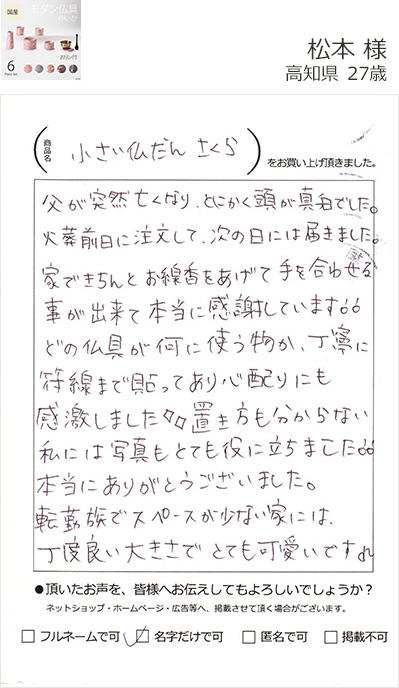 国産
モダン仏具
おりん付
6
松本 様
高知県 27歳
商品名
小さい仏だん さくら
をお買い上げ頂きました。
父が突然亡くなり、とにかく頭が真白でした。
火葬前日に注文して、次の日には届きました。
家できちんとお線香をあげて手を合わせる
事が出来て本当に感謝しています。
どの仏具が何に使う物か、丁寧に
符線まで貼ってあり心配りにも
感激しました 置き方も分からない
私には写真もとても役に立ちました。
本当にありがとうございました。
転勤族でスペースが少ない家には、
丁度良い大きさでとても可愛いですね
●頂いたお声を、皆様へお伝えしてもよろしいでしょうか？
ネットショップ・ホームページ・広告等へ、掲載させて頂く場合がございます。
□ フルネームで可 ☑ 名字だけで可 □ 匿名で可 □ 掲載不可